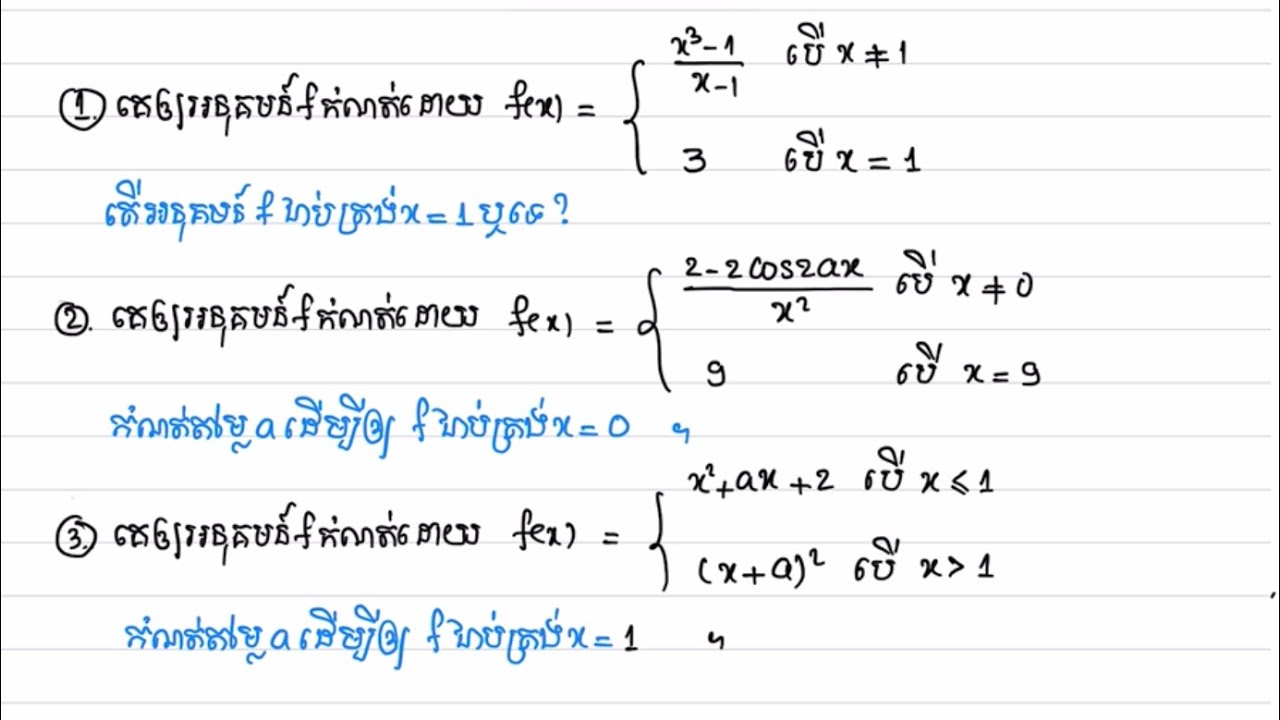 1. គេឲ្យអនុគមន៍ f កំណត់ដោយ f(x) = { (x³-1)/(x-1) បើ x ≠ 1
3 បើ x = 1
តើអនុគមន៍ f ជាប់ត្រង់ x = 1 ឬទេ ?
2. គេឲ្យអនុគមន៍ f កំណត់ដោយ f(x) = { (2-2cos2ax)/x² បើ x ≠ 0
9 បើ x = 9
កំណត់តម្លៃ a ដើម្បីឲ្យ f ជាប់ត្រង់ x = 0 ។
3. គេឲ្យអនុគមន៍ f កំណត់ដោយ f(x) = { x²+ax+2 បើ x ≤ 1
(x+a)² បើ x > 1
កំណត់តម្លៃ a ដើម្បីឲ្យ f ជាប់ត្រង់ x = 1 ។